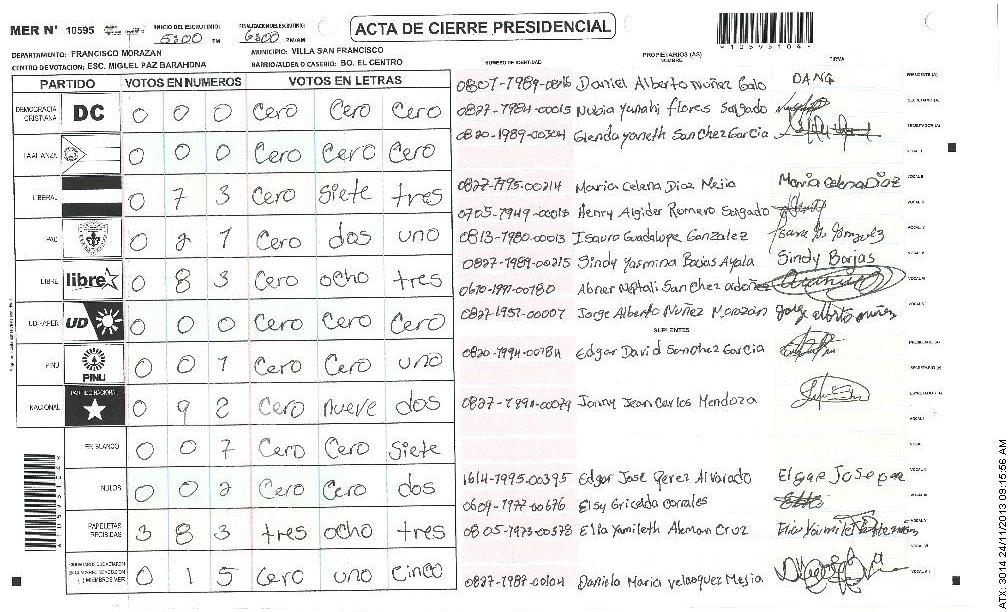 MER N° 10595 INICIO DEL ESCRUTINIO: 5:00 PM FINALIZACION DEL ESCRUTINIO: 6:00 PM/AM ACTA DE CIERRE PRESIDENCIAL
DEPARTAMENTO: FRANCISCO MORAZAN MUNICIPIO: VILLA SAN FRANCISCO
CENTRO DE VOTACION: ESC. MIGUEL PAZ BARAHONA BARRIO/ALDEA O CASERIO: BO. EL CENTRO
NUMERO DE IDENTIDAD PROPIETARIOS (AS) NOMBRE FIRMA
PARTIDO VOTOS EN NUMEROS VOTOS EN LETRAS
DEMOCRACIA CRISTIANA DC 0 0 0 Cero Cero Cero
LA ALIANZA 0 0 0 Cero Cero Cero
LIBERAL 0 7 3 Cero Siete tres
PAC 0 2 1 Cero dos uno
LIBRE libre 0 8 3 Cero ocho tres
UD-FAPER UD 0 0 0 Cero Cero Cero
PINU PINU 0 0 1 Cero Cero uno
NACIONAL PARTIDO NACIONAL 0 9 2 Cero nueve dos
EN BLANCO 0 0 7 Cero Cero Siete
NULOS 0 0 2 Cero Cero dos
PAPELETAS RECIBIDAS 3 8 3 tres ocho tres
MIEMBROS MER 0 1 5 Cero uno Cinco
Daniel Alberto Nuñez DANG PRESIDENTE (A)
0827-1984-00015 Nubia Yanahi flores Salgado SECRETARIO (A)
0820-1989-00304 Glenda Yaneth Sanchez Garcia ESCRUTADOR (A)
VOCAL I
0827-1995-00214 Maria Celena Diaz Mejia Maria Celena Diaz VOCAL II
0705-1949-00013 Henry Algider Romero Salgado
0813-1980-00013 Isauro Guadalupe Gonzalez
0827-1989-00215 Sindy Yasmina Borjas Ayala Sindy Borjas
Abner Neftali Sanchez Ordoñez
0827-1957-00007 Jorge Alberto Nuñez Morazán Jorge Alberto nuñez
SUPLENTES
0820-1994-00784 Edgar David Sanchez Garcia PRESIDENTE (A)
SECRETARIO (A)
Jonny Jean Carlos Mendoza ESCRUTADOR (A)
VOCAL I
1614-1995-00395 Edgar Jose Perez Alvarado
Elsy Gricelda Corrales
0805-1973-00378 Elia Yamileth Aleman Cruz
Daniela Maria Velasquez Mejia
ATX: 3014 24/11/2013 09:15:56 AM